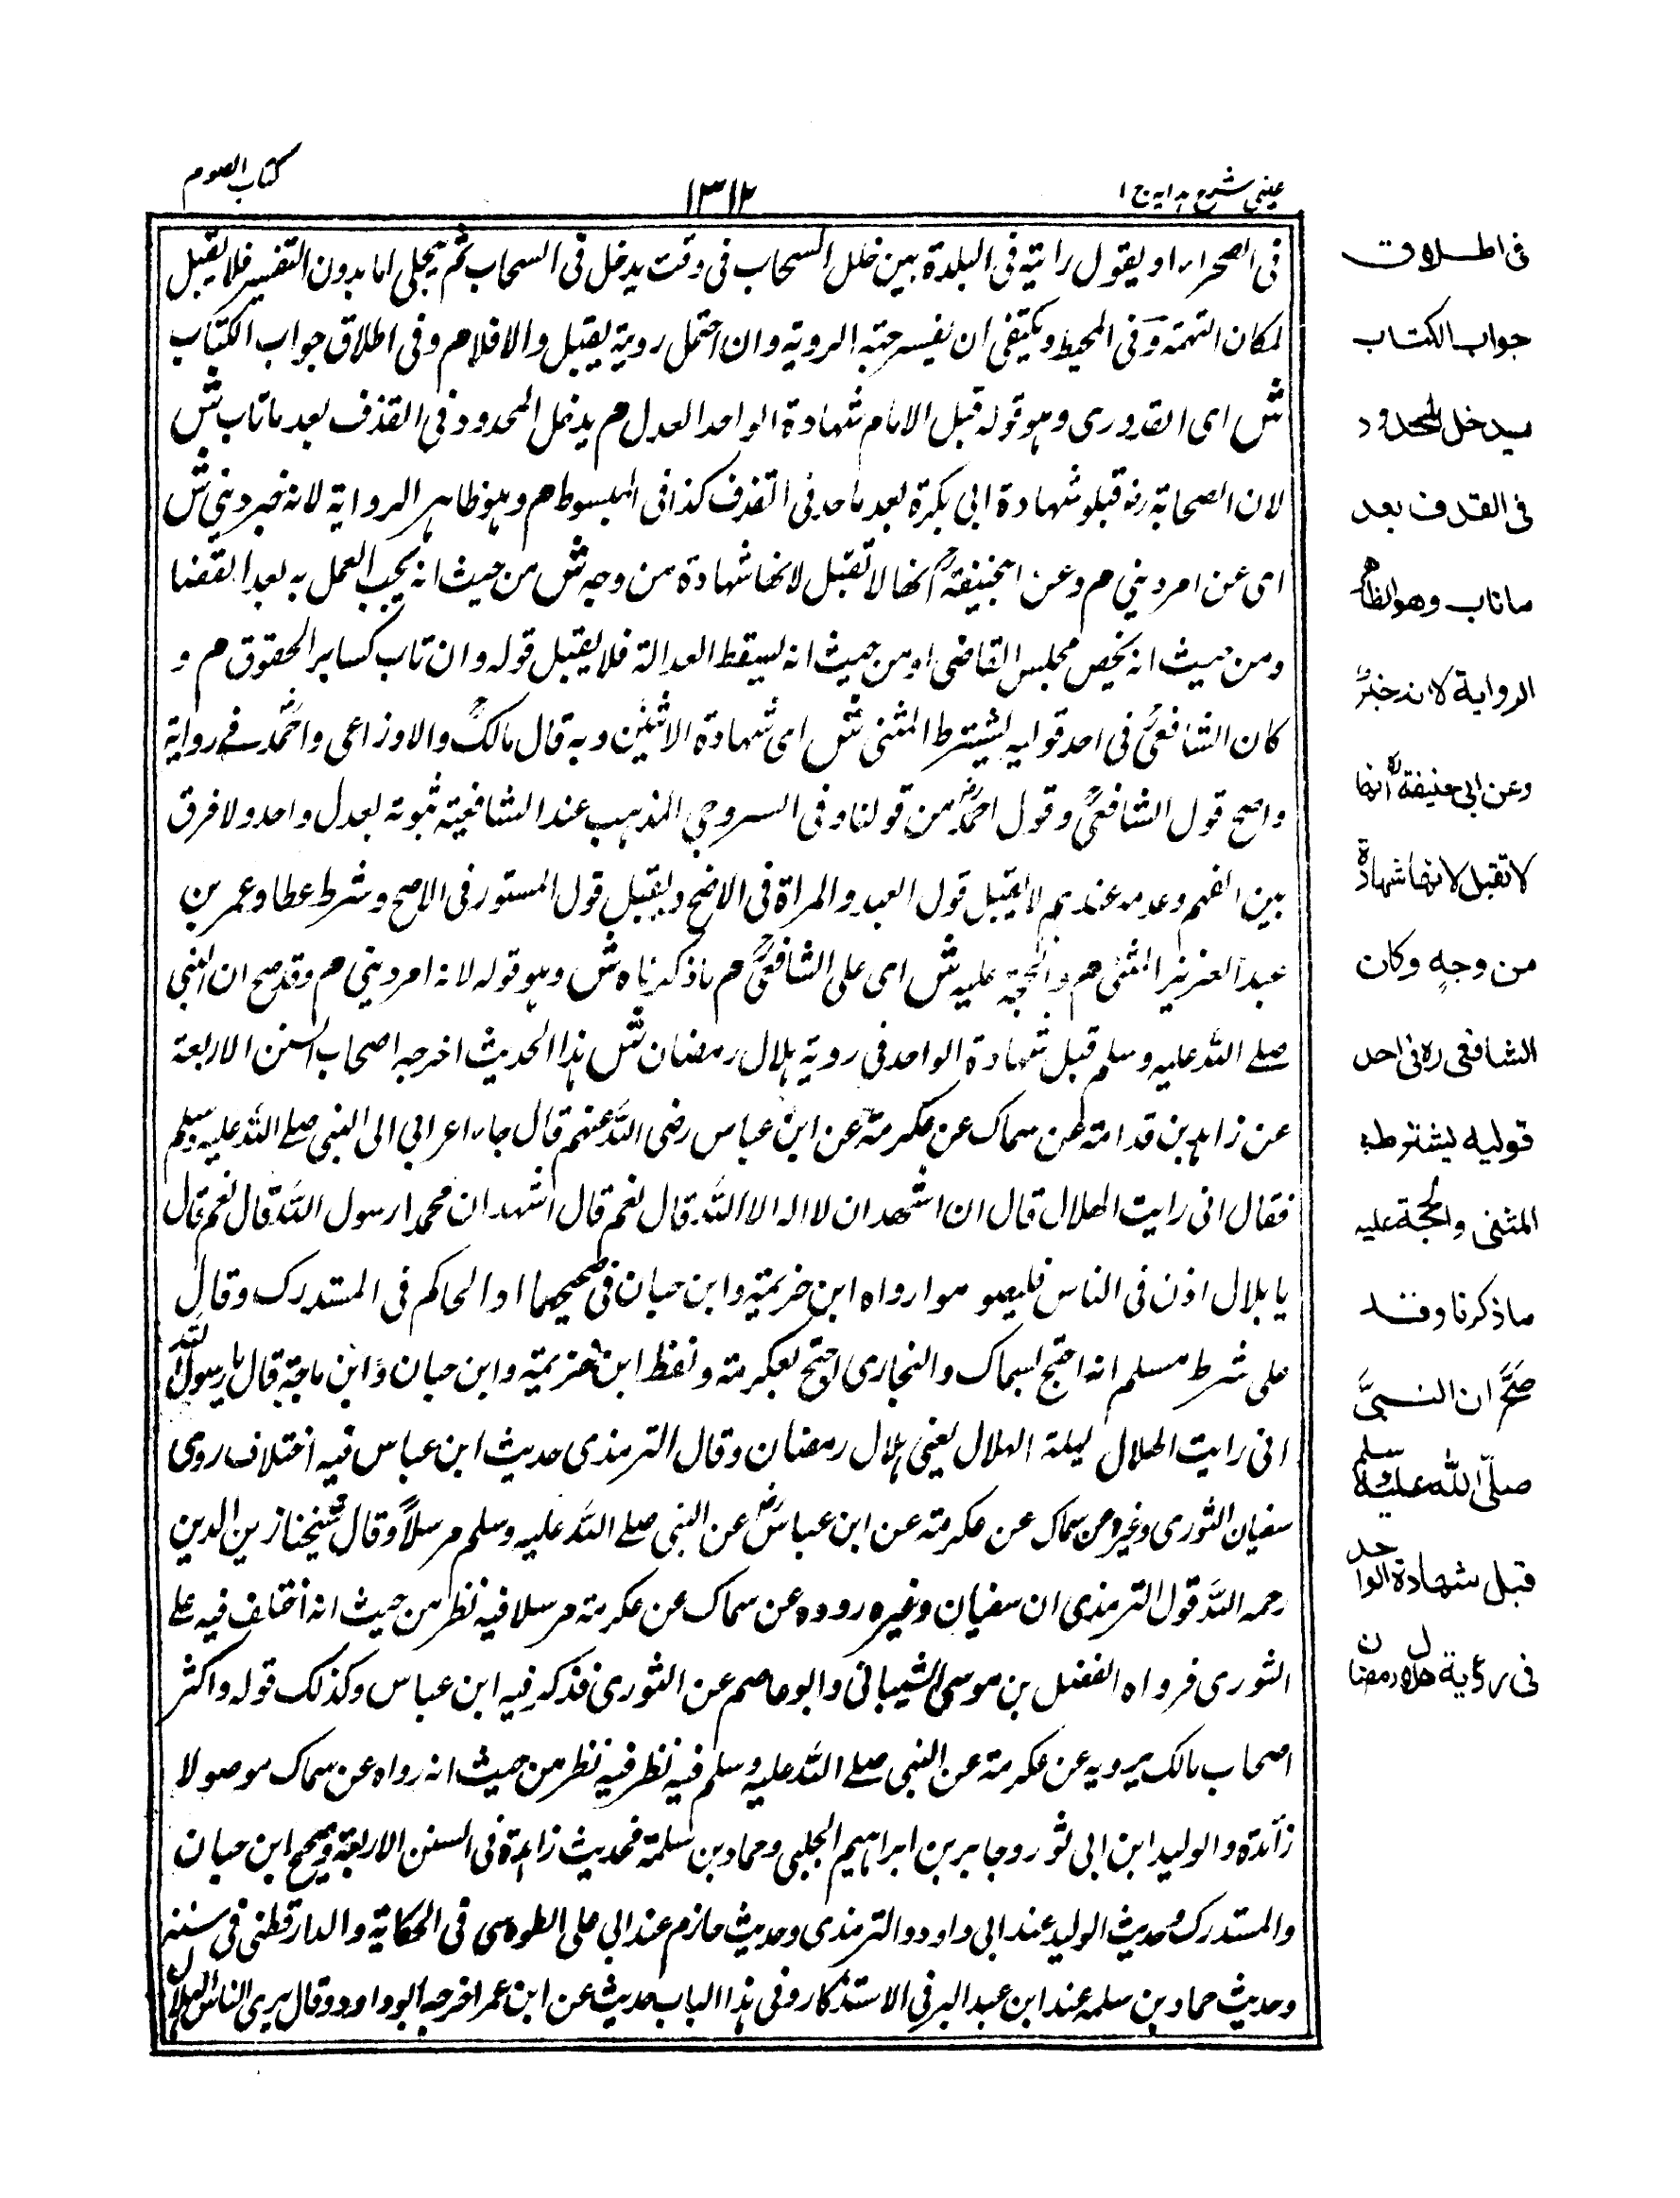 عینی شرح ہدایہ ج ا
١٣١٢
كتاب الصوم
فی الصحراء او یقول رایته فی البلدة بین خلل السحاب فی وقت یدخل فی السحاب ثم ینجلی اما بدون التفسیر فلا یقبل
لمکان التهمة وفی المحیط ویکتفی ان یفسر جهة الرویة وان احتمل رویة یقبل والا فلا م وفی اطلاق جواب الکتاب
ش ای القدوری وہو قوله قبل الامام شهادة الواحد العدل م یدخل المحدود فی القذف بعد ما تاب ش
لان الصحابة رضہ قبلو شهادة ابی بکرة بعد ما حد فی القذف کذا فی المبسوط م وہو ظاہر الروایة لانه خبر دینی ش
ای عن امر دینی م وعن ابیحنیفة انها لا تقبل لانها شهادة من وجه ش من حیث انه یجب العمل به بعد القضا
ومن حیث انه یخص مجلس القاضی او من حیث انه یسقط العدالة فلا یقبل قوله وان تاب کسایر الحقوق م و
کان الشافعیؒ فی احد قولیه یشترط المثنی ش ای شهادة الاثنین وبه قال مالکؒ والاوزاعی واحمدؒ فی روایة
واصح قول الشافعیؒ وقول احمدؒ من قولنا وفی السروجی المذہب عند الشافعیة ثبوته بعدل واحد ولا فرق
بین الغیم وعدمه عندہم لا یقبل قول العبد والمراة فی الاصح ویقبل قول المستور فی الاصح وشرط عطا وعمر بن
عبد العزیز المثنی م والحجة علیه ش ای علی الشافعیؒ م ما ذکرناه ش وہو قوله لانه امر دینی م وقد صح ان النبی
صلے اللہ علیه وسلم قبل شهادة الواحد فی رویة ہلال رمضان ش ہذا الحدیث اخرجه اصحاب السنن الاربعة
عن زاہد بن قدامة عن سماک عن عکرمة عن ابن عباس رضی اللہ عنهم قال جاء اعرابی الی النبی صلے اللہ علیه وسلم
فقال انی رایت الهلال قال ان اشهد ان لا اله الا اللہ قال نعم قال اشهد ان محمدا رسول اللہ قال نعم قال
یا بلال اذن فی الناس فلیصو موا رواه ابن خزیمة وابن حبان فی صحیحهما او الحاکم فی المستدرک وقال
علی شرط مسلم انه احتج بسماک والبخاری احتج بعکرمة ولفظ ابن خزیمة وابن حبان وابن ماجة قال یا رسول اللہ
انی رایت الهلال لیلة الهلال یعنی ہلال رمضان وقال الترمذی حدیث ابن عباس فیه اختلاف روی
سفیان الثوری وغیره عن سماک عن عکرمة عن ابن عباسؓ عن النبی صلے اللہ علیه وسلم مرسلاً وقال شیخنا زین الدین
رحمه اللہ قول الترمذی ان سفیان وغیره رووه عن سماک عن عکرمة مرسلا فیه نظر من حیث انه اختلف فیه علے
الثوری فرواه الفضل بن موسی الشیبانی وابو عاصم عن الثوری فذکر فیه ابن عباس وکذلک قوله واکثر
اصحاب مالک یرویه عن عکرمة عن النبی صلے اللہ علیه وسلم فیه نظر فیه نظر من حیث انه رواه عن سماک موصولا
زائدة والولید ابن ابی ثور وجابر بن ابراہیم الجلبی وحماد بن سلمة فحدیث زائدة فی السنن الاربعة وصحیح ابن حبان
والمستدرک وحدیث الولید عند ابی داود والترمذی وحدیث حازم عند ابی علی الطوسی فی الحکایة والدارقطنی فی سننه
وحدیث حماد بن سلمه عند ابن عبد البر فی الاستذکار وفی ہذا الباب حدیث عن ابن عمر اخرجه ابو داود وقال یری الناس الهلال
فی اطلاق
جواب الکتاب
یدخل المحدود
فی القذف بعد
ما تاب وهو الظاهر
الروایة لانه خبرٌ
وعن ابی حنیفة رہ انها
لا تقبل لانها شهادة
من وجهٍ وکان
الشافعی رہ فی احد
قولیه یشترط
المثنی والحجة علیه
ما ذکرنا وقد
صَحَّ ان النبیَّ
صلّی الله علیه وسلم
قبل شهادة الواحد
فی رؤیة هلال رمضان